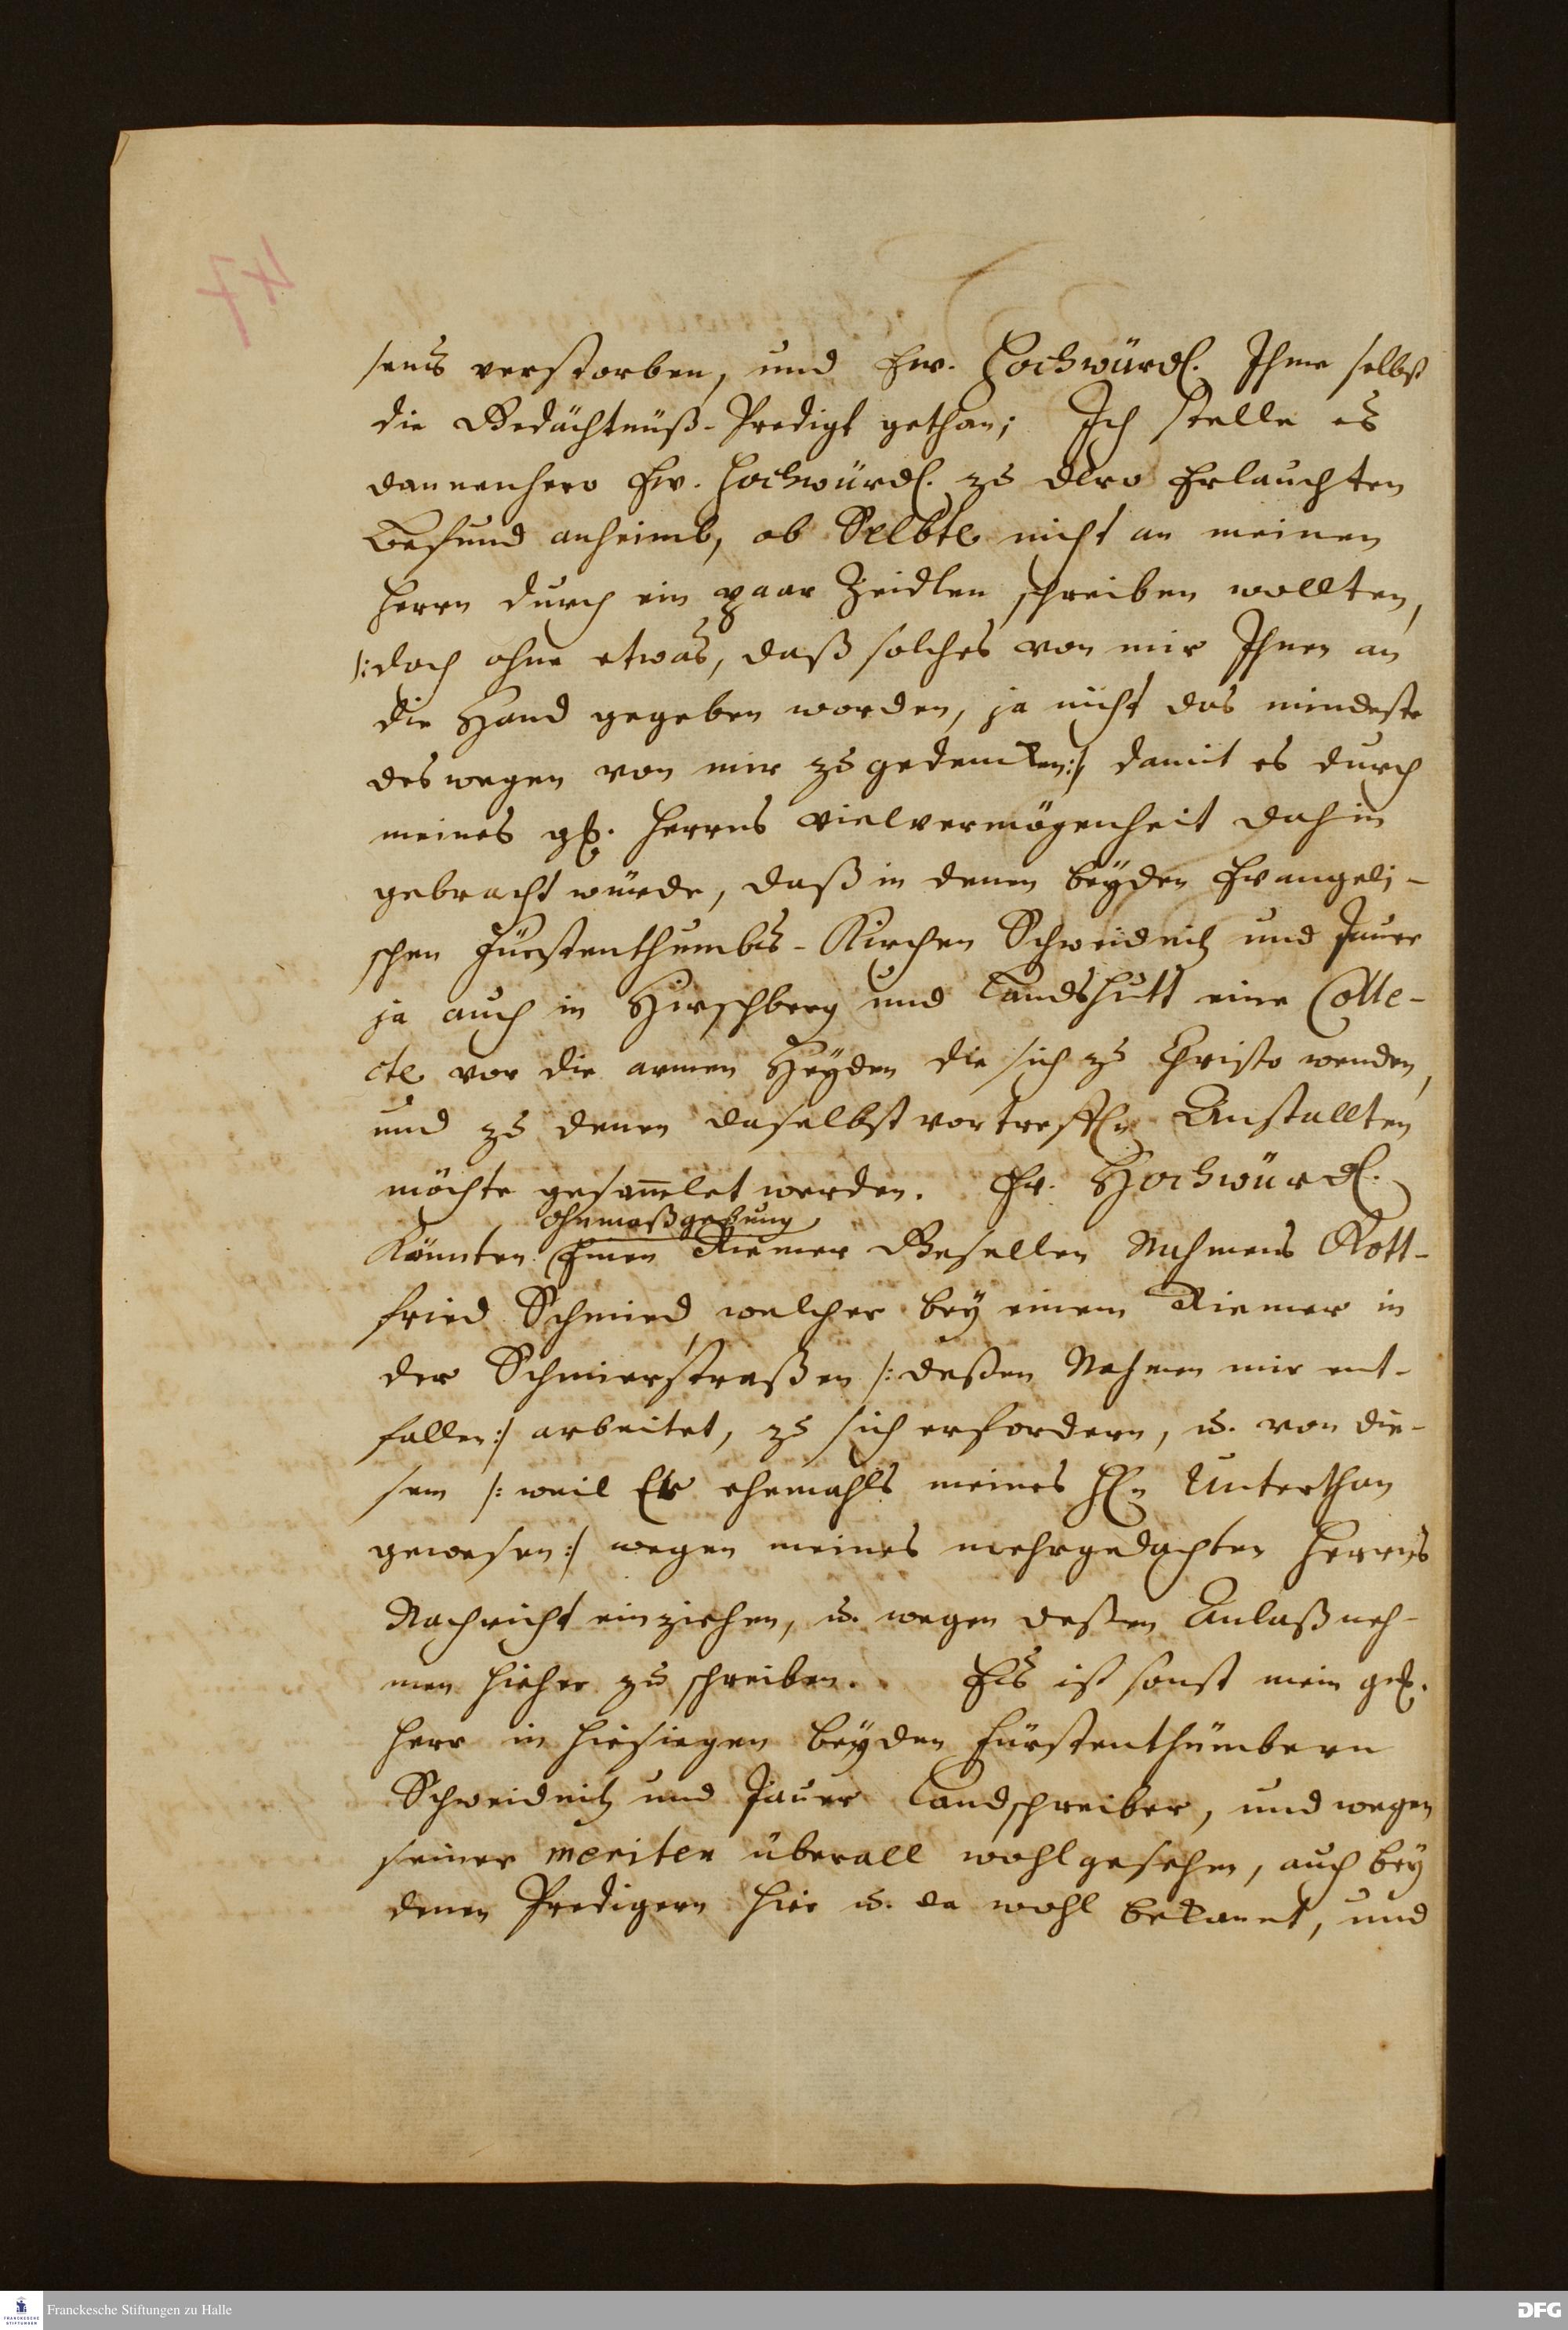 seels verstorben, und Ew. Hochwürdl. Ihme selbst
die Gedächtnüß-Predigt gethan; Ich stelle es
dannenhero Ew. Hochwürdl. zu dero Erlauchten
Befund anheimb, ob Selbte nicht an meinen
Herrn durch ein paar Zeidlen schreiben wollten,
/:doch ohne etwas, daß solches von mir Ihnen an
die Hand gegeben worden, ja nicht das mindeste
deswegen von mir zu gedencken:/ damit es durch
meines gl. Herrns vielvermögenheit dahin
gebracht würde, daß in denen beyden Evangeli-
schen Fürstenthumbs-Kirchen Schweidnitz und Jauer
ja auch in Hirschberg und Landshutt eine Colle-
cte vor die armen Heyden die sich zu Christo wenden,
und zu denen daselbst vortreffln Anstallten
möchte gesam̅let werden. Ew. Hochwürdl.
ohnmaßgebung
Könnten Einen Riemer Gesellen Nahmens Gott-
fried Schmied, welcher bey einem Riemer in
der Schmierstraßen /: deßen Nahmen mir ent-
fallen:/ arbeitet, zu sich erfordern, u. von die-
sem /: weil Er ehemahls meines Hln Unterthan
gewesen:/ wegen meines mehrgedachten Herrns
Nachricht einziehen, u. wegen deßen Anlaß neh-
men hieher zu schreiben. Es ist sonst mein gl.
Herr in hiesiegen beyden Fürstenthümbern
Schweidnitz und Jauer Landschreiber, und wegen
seiner meriten überall wohl gesehen, auch bey
denen Predigern hier u. da wohl bekannt, und
Franckesche Stiftungen zu Halle
DFG